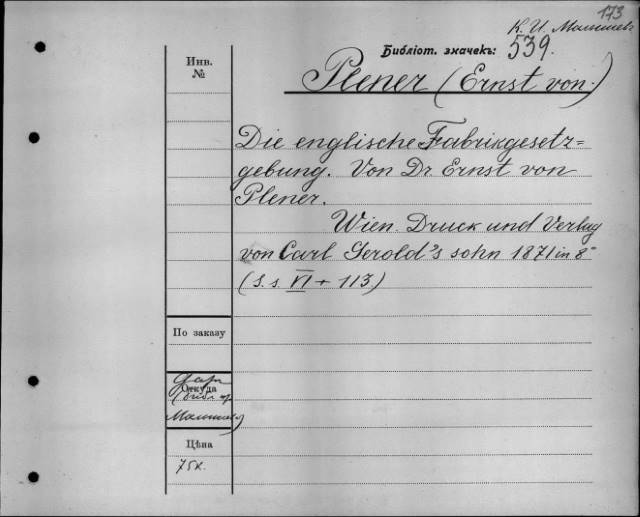 173
К. И. Малышев
Библіот. значекъ: 539.
Инв.
№
Plener (Ernst von.)
Die englische Fabrikgesetz=
gebung. Von Dr. Ernst von
Plener.
Wien. Druck und Verlag
von Carl Gerold's sohn 1871 in 8°
(S. s. VI + 113.)
По заказу
Откуда
Даръ
Малышева
Цѣна
75к.